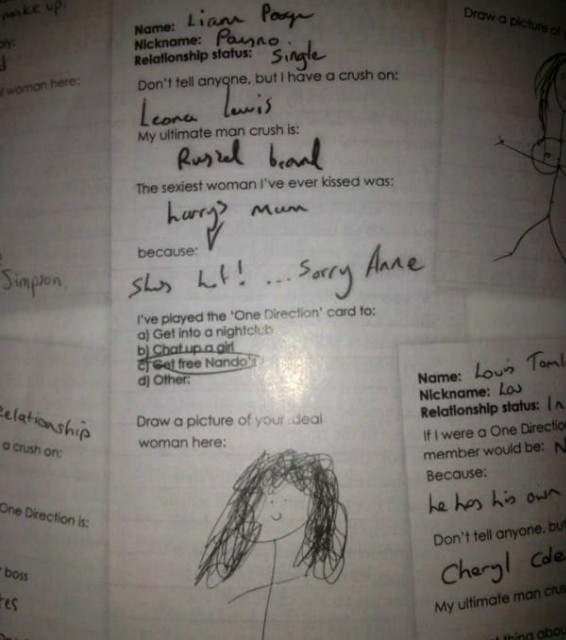 make up.
woman here:
Simpson
Relationship
a crush on:
One Direction is:
boss
Name: Liam Payne
Nickname: Payno
Relationship status: Single
Don't tell anyone, but I have a crush on:
Leona Lewis
My ultimate man crush is:
Russel brand
The sexiest woman I've ever kissed was:
harrys mum
because:
Shes hot! ... Sorry Anne
I've played the 'One Direction' card to:
a) Get into a nightclub
b) Chat up a girl
c) Get free Nando's
d) Other:
Draw a picture of your ideal
woman here:
Draw a picture of
Name: Louis Toml
Nickname: Lou
Relationship status: In
If I were a One Directio
member would be: N
Because:
he has his own
Don't tell anyone, but
Cheryl Cole
My ultimate man crus
thing abou